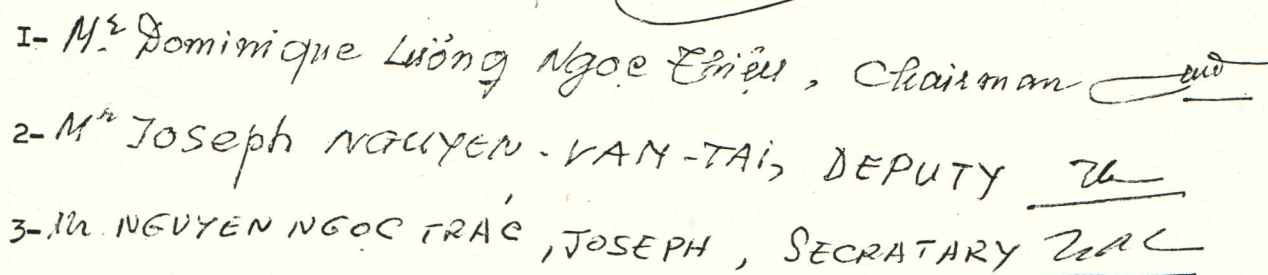 1- Mr Dominique Lương Ngọc Thiệu, Chairman
2- Mr Joseph NGUYEN-VAN-TAi, DEPUTY
3- Mr NGUYEN NGOC TRÁC, JOSEPH, SECRATARY